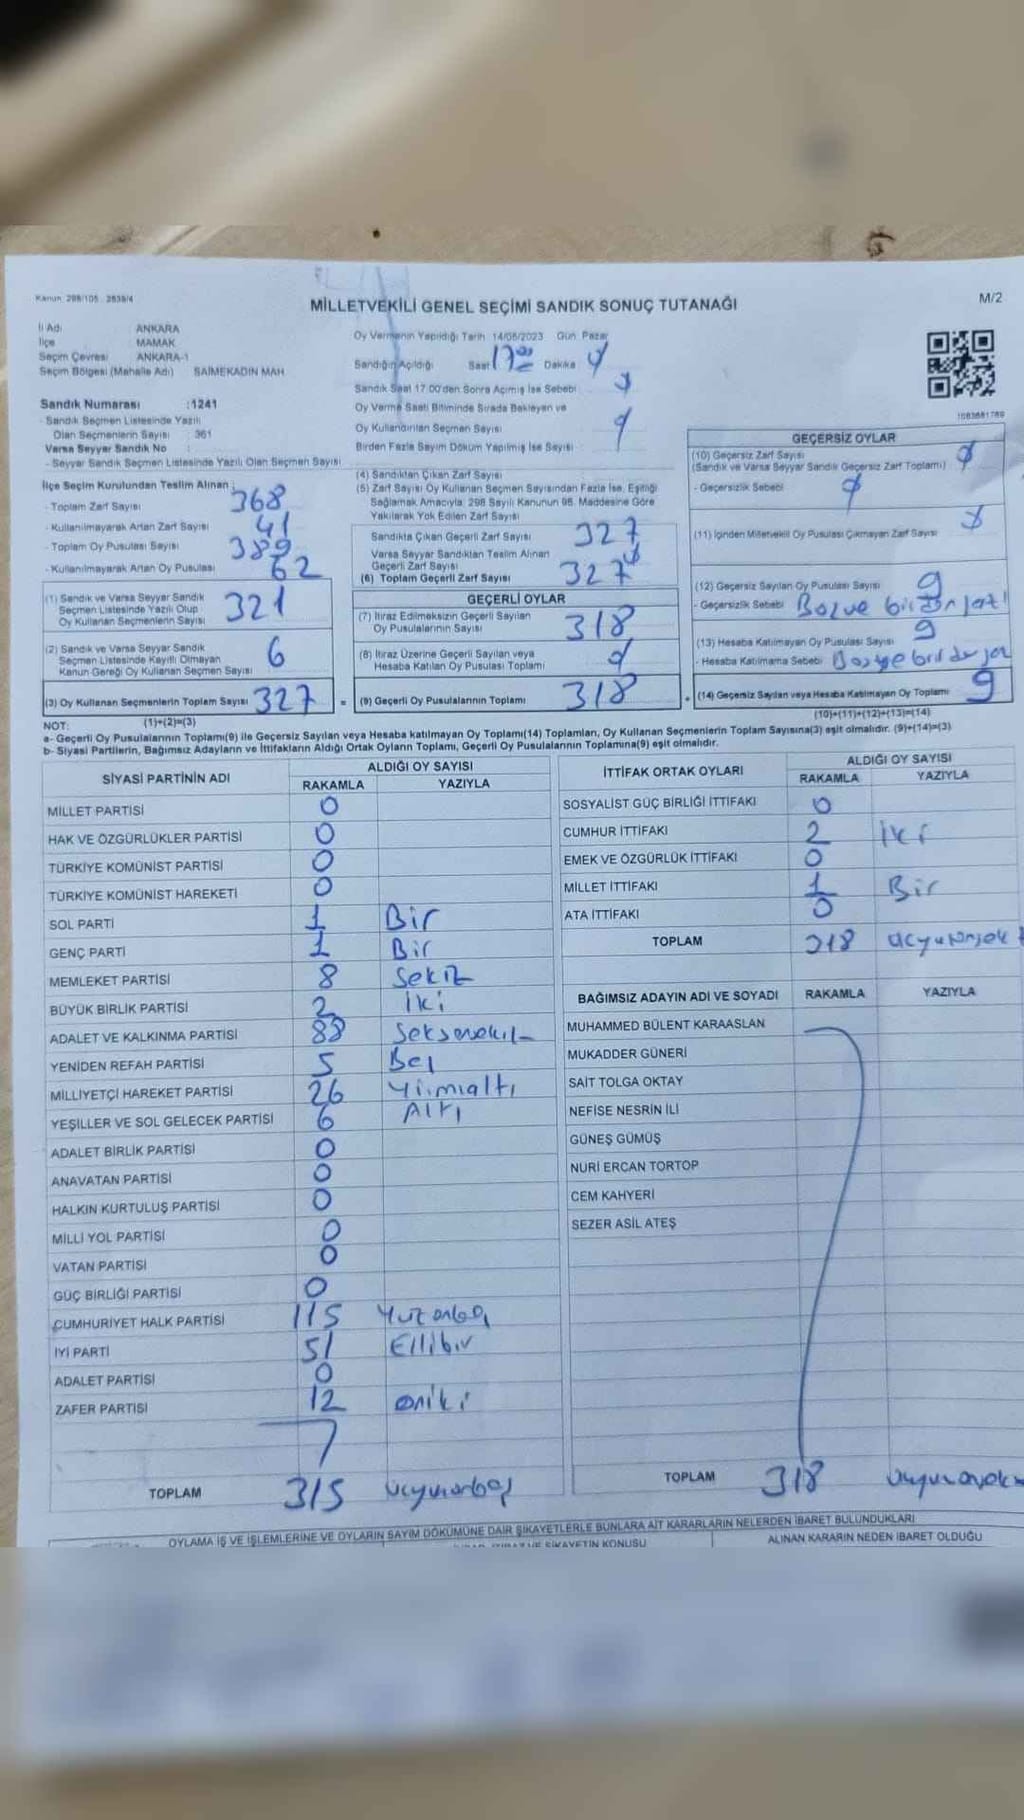 Kanun 298/105
MİLLETVEKİLİ GENEL SEÇİMİ SANDIK SONUÇ TUTANAĞI
M/2
İl Adı ANKARA
İlçe MAMAK
Seçim Çevresi ANKARA-1
Seçim Bölgesi (Mahalle Adı) SAİMEKADIN MAH
Oy Vermenin Yapıldığı Tarih 14/05/2023 Gün Pazar
Sandığın Açıldığı Saat 17 00 Dakika
Sandık Saat 17.00'den Sonra Açılmış İse Sebebi
Oy Verme Saati Bitiminde Sırada Bekleyen ve
Oy Kullandırılan Seçmen Sayısı
Birden Fazla Sayım Döküm Yapılmış İse Sayısı
Sandık Numarası :1241
- Sandık Seçmen Listesinde Yazılı
Olan Seçmenlerin Sayısı : 361
Varsa Seyyar Sandık No :
- Seyyar Sandık Seçmen Listesinde Yazılı Olan Seçmen Sayısı
İlçe Seçim Kurulundan Teslim Alınan :
- Toplam Zarf Sayısı 368
- Kullanılmayarak Artan Zarf Sayısı 41
- Toplam Oy Pusulası Sayısı 389
- Kullanılmayarak Artan Oy Pusulası 62
(1) Sandık ve Varsa Seyyar Sandık
Seçmen Listesinde Yazılı Olup
Oy Kullanan Seçmenlerin Sayısı 321
(2) Sandık ve Varsa Seyyar Sandık
Seçmen Listesinde Kayıtlı Olmayan
Kanun Gereği Oy Kullanan Seçmen Sayısı 6
(3) Oy Kullanan Seçmenlerin Toplam Sayısı 327 =
(4) Sandıktan Çıkan Zarf Sayısı
(5) Zarf Sayısı Oy Kullanan Seçmen Sayısından Fazla İse, Eşitliği
Sağlamak Amacıyla; 298 Sayılı Kanunun 98. Maddesine Göre
Yakılarak Yok Edilen Zarf Sayısı
Sandıkta Çıkan Geçerli Zarf Sayısı 327
Varsa Seyyar Sandıktan Teslim Alınan
Geçerli Zarf Sayısı
(6) Toplam Geçerli Zarf Sayısı 327
GEÇERLİ OYLAR
(7) İtiraz Edilmeksizin Geçerli Sayılan
Oy Pusulalarının Sayısı 318
(8) İtiraz Üzerine Geçerli Sayılan veya
Hesaba Katılan Oy Pusulası Toplamı
(9) Geçerli Oy Pusulalarının Toplamı 318 +
GEÇERSİZ OYLAR
(10) Geçersiz Zarf Sayısı
(Sandık ve Varsa Seyyar Sandık Geçersiz Zarf Toplamı)
- Geçersizlik Sebebi
(11) İçinden Milletvekili Oy Pusulası Çıkmayan Zarf Sayısı
(12) Geçersiz Sayılan Oy Pusulası Sayısı 9
- Geçersizlik Sebebi
(13) Hesaba Katılmayan Oy Pusulası Sayısı 9
- Hesaba Katılmama Sebebi
(14) Geçersiz Sayılan veya Hesaba Katılmayan Oy Toplamı 9
NOT: (1)+(2)=(3) (10)+(11)+(12)+(13)=(14)
a- Geçerli Oy Pusulalarının Toplamı(9) ile Geçersiz Sayılan veya Hesaba katılmayan Oy Toplamı(14) Toplamları, Oy Kullanan Seçmenlerin Toplam Sayısına(3) eşit olmalıdır. (9)+(14)=(3)
b- Siyasi Partilerin, Bağımsız Adayların ve İttifakların Aldığı Ortak Oyların Toplamı, Geçerli Oy Pusulalarının Toplamına(9) eşit olmalıdır.
SİYASİ PARTİNİN ADI ALDIĞI OY SAYISI
RAKAMLA YAZIYLA
MİLLET PARTİSİ 0
HAK VE ÖZGÜRLÜKLER PARTİSİ 0
TÜRKİYE KOMÜNİST PARTİSİ 0
TÜRKİYE KOMÜNİST HAREKETİ 0
SOL PARTİ 1 Bir
GENÇ PARTİ 1 Bir
MEMLEKET PARTİSİ 8 Sekiz
BÜYÜK BİRLİK PARTİSİ 2 İki
ADALET VE KALKINMA PARTİSİ 88
YENİDEN REFAH PARTİSİ 5 Beş
MİLLİYETÇİ HAREKET PARTİSİ 26 Yirmialtı
YEŞİLLER VE SOL GELECEK PARTİSİ 6 Altı
ADALET BİRLİK PARTİSİ 0
ANAVATAN PARTİSİ 0
HALKIN KURTULUŞ PARTİSİ 0
MİLLİ YOL PARTİSİ 0
VATAN PARTİSİ 0
GÜÇ BİRLİĞİ PARTİSİ 0
CUMHURİYET HALK PARTİSİ 115 Yüzonbeş
İYİ PARTİ 51 Ellibir
ADALET PARTİSİ 0
ZAFER PARTİSİ 12 oniki
TOPLAM 315 üçyüzonbeş
İTTİFAK ORTAK OYLARI ALDIĞI OY SAYISI
RAKAMLA YAZIYLA
SOSYALİST GÜÇ BİRLİĞİ İTTİFAKI 0
CUMHUR İTTİFAKI 2 İki
EMEK VE ÖZGÜRLÜK İTTİFAKI 0
MİLLET İTTİFAKI 1 Bir
ATA İTTİFAKI 0
TOPLAM 318
BAĞIMSIZ ADAYIN ADI VE SOYADI RAKAMLA YAZIYLA
MUHAMMED BÜLENT KARAASLAN
MUKADDER GÜNERİ
SAİT TOLGA OKTAY
NEFİSE NESRİN İLİ
GÜNEŞ GÜMÜŞ
NURİ ERCAN TORTOP
CEM KAHYERİ
SEZER ASİL ATEŞ
TOPLAM 318
OYLAMA İŞ VE İŞLEMLERİNE VE OYLARIN SAYIM DÖKÜMÜNE DAİR ŞİKAYETLERLE BUNLARA AİT KARARLARIN NELERDEN İBARET BULUNDUKLARI
ALINAN KARARIN NEDEN İBARET OLDUĞU